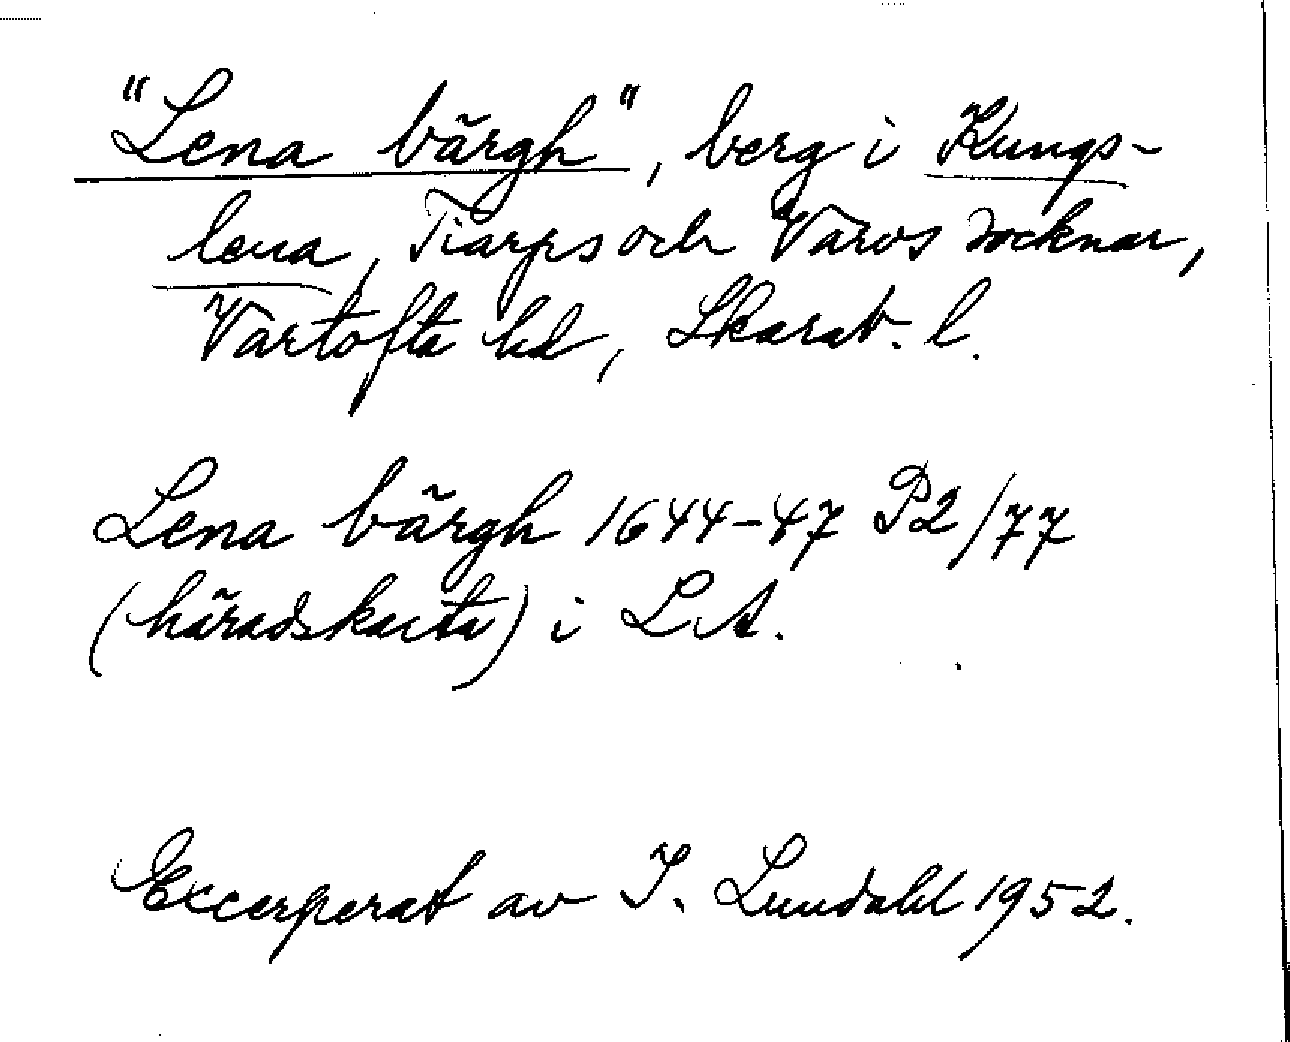 "Lena bärgh", berg i Kungs-
lena, Tiarps och Varvs socknar,
Vartofta hd, Skarab. l.
Lena bärgh 1644-47 P2/77
(häradskarta) i LA.
Excerperat av I. Lundahl 1952.